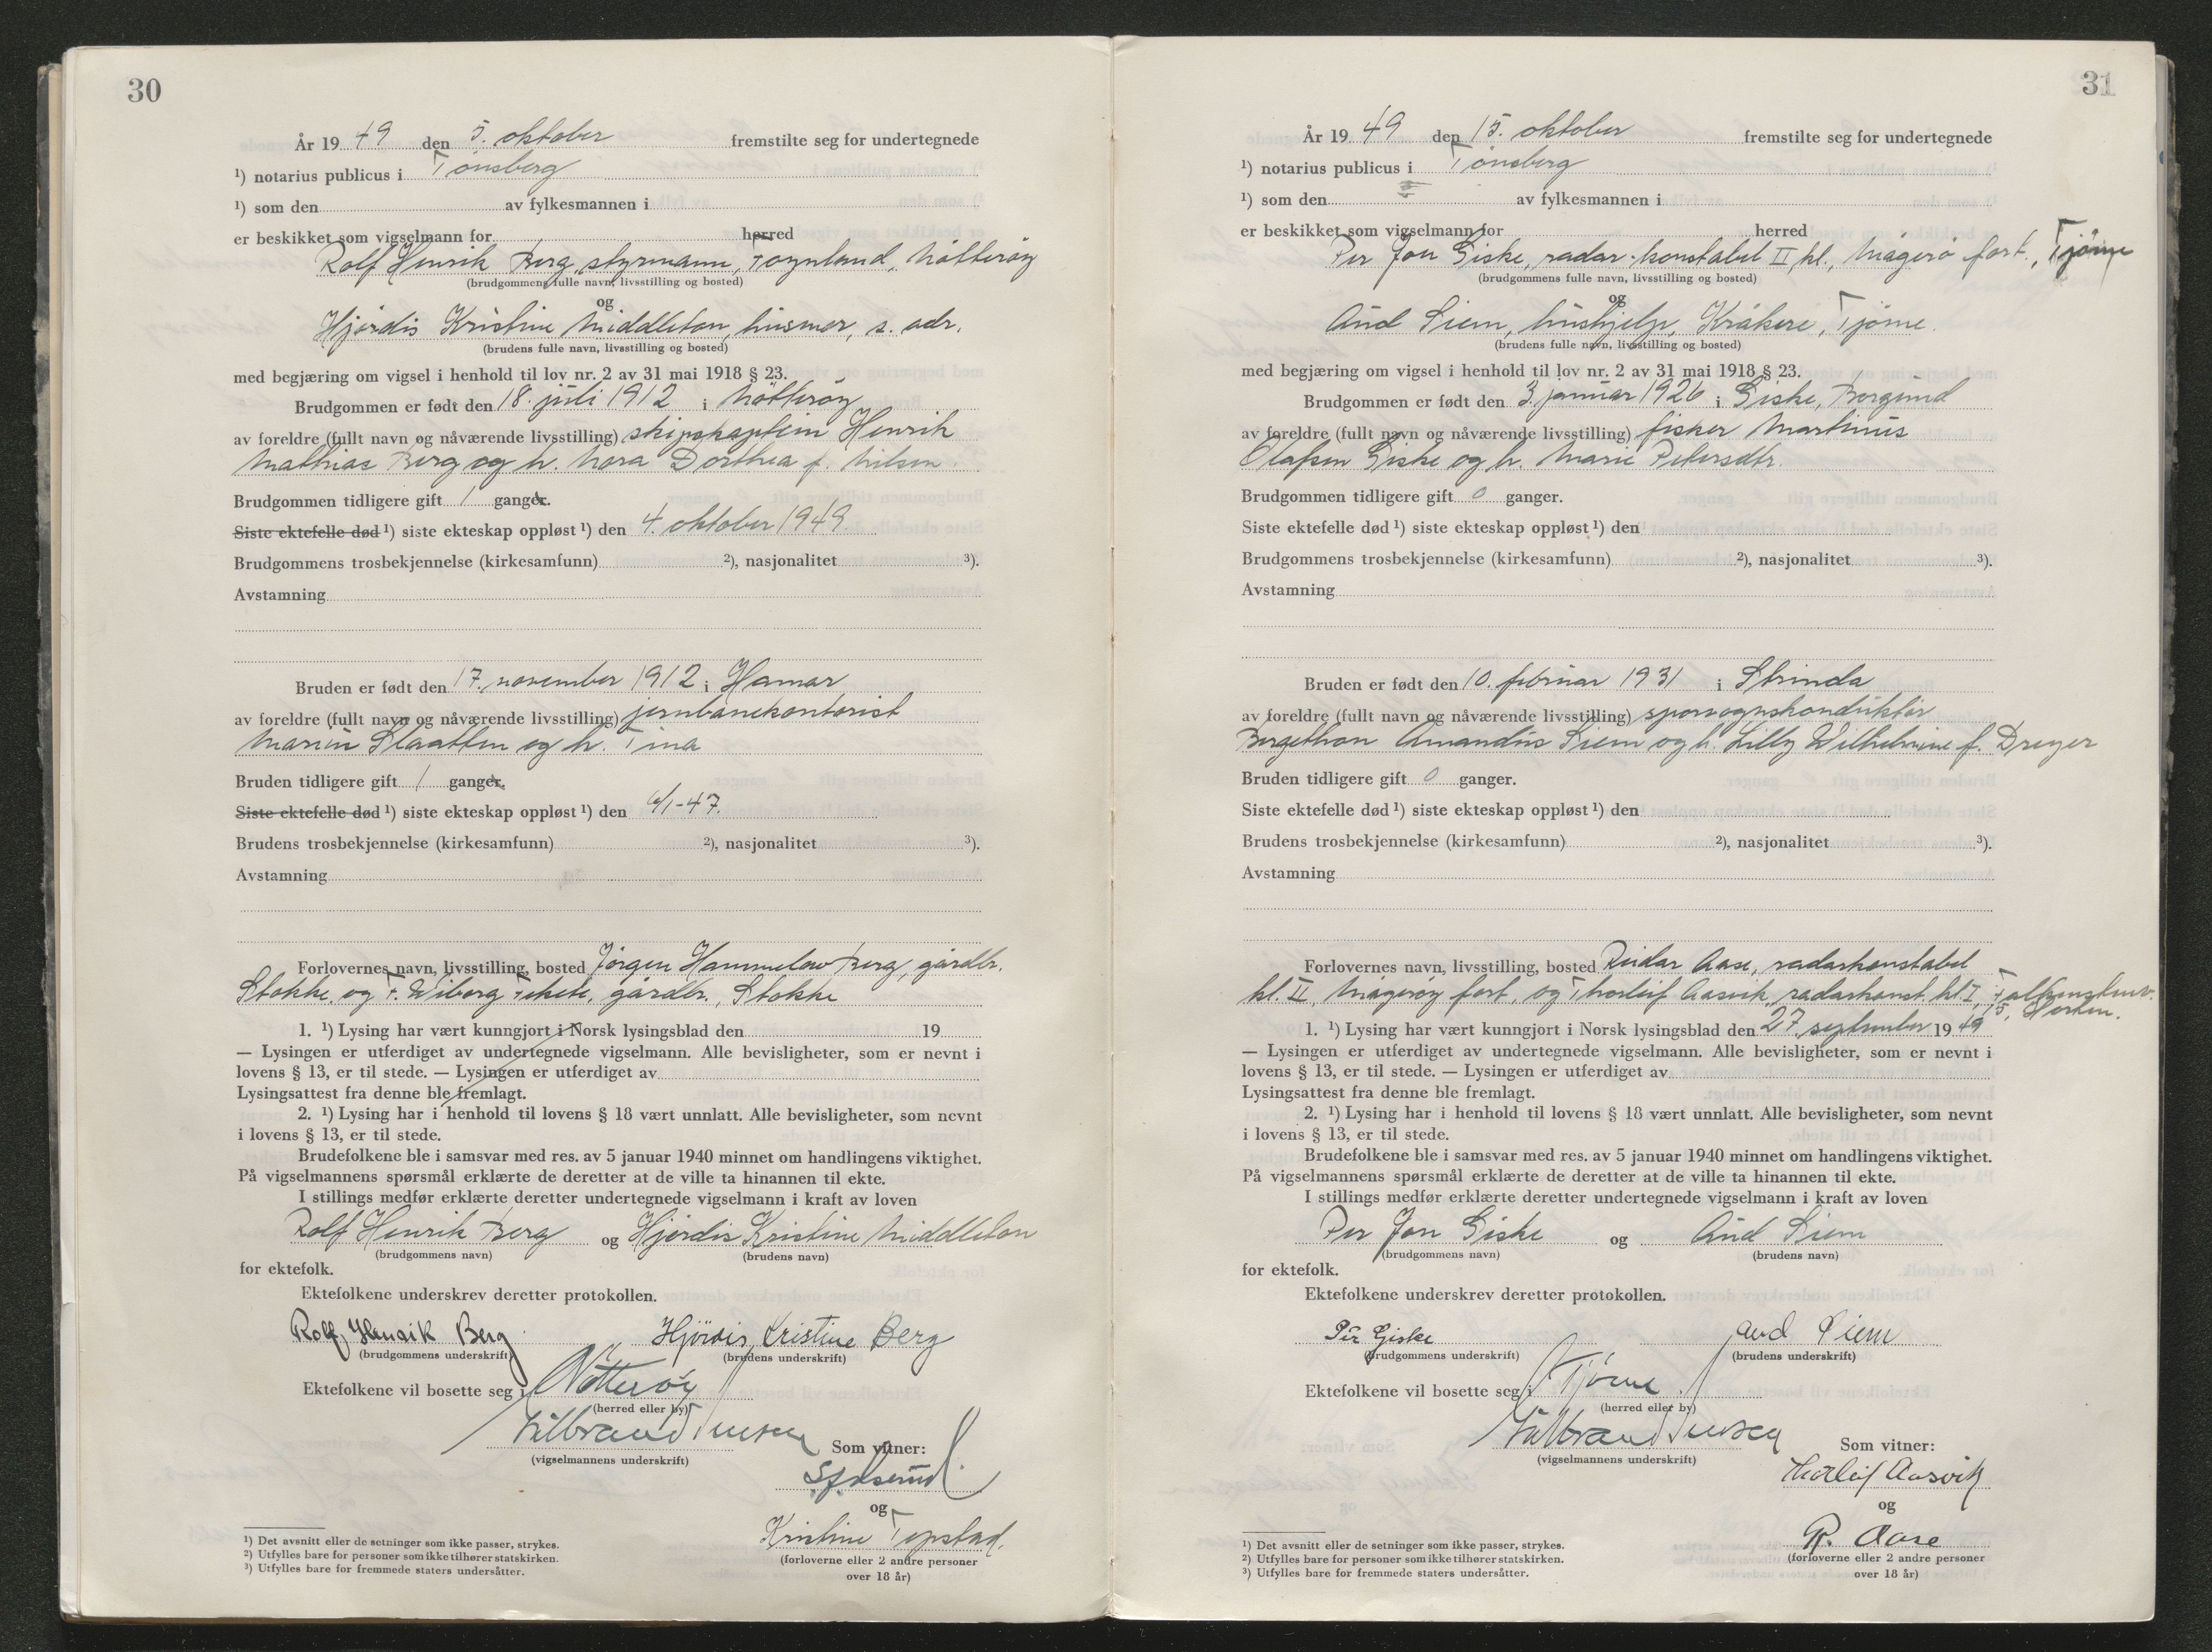 30
År 19 49 den 5. oktober fremstilte seg for undertegnede
¹) notarius publicus i Tønsberg
¹) som den av fylkesmannen i
er beskikket som vigselmann for herred
Rolf Henrik Berg, styrmann, Föynland, Nötteröy
(brudgommens fulle navn, livsstilling og bosted)
og
Hjørdis Kristine Middleton, husmor, s. adr.
(brudens fulle navn, livsstilling og bosted)
med begjæring om vigsel i henhold til lov nr. 2 av 31 mai 1918 § 23.
Brudgommen er født den 18. juli 1912 i Nötteröy
av foreldre (fullt navn og nåværende livsstilling) skipskaptein Henrik
Mathias Berg og h. Nora Dorthea f. Nilsen
Brudgommen tidligere gift 1 ganger.
Siste ektefelle død ¹) siste ekteskap oppløst ¹) den 4. oktober 1949.
Brudgommens trosbekjennelse (kirkesamfunn) ²), nasjonalitet ³).
Avstamning
Bruden er født den 17. november 1912 i Hamar
av foreldre (fullt navn og nåværende livsstilling) jernbanekontorist
Slaatten og h. Tina
Bruden tidligere gift 1 ganger.
Siste ektefelle død ¹) siste ekteskap oppløst ¹) den 6/1-47.
Brudens trosbekjennelse (kirkesamfunn) ²), nasjonalitet ³).
Avstamning
Forlovernes navn, livsstilling, bosted Jørgen Hammelow Berg, gårdbr.
Stokke, og F. Wiborg Thekete, gårdbr., Stokke
1. ¹) Lysing har vært kunngjort i Norsk lysingsblad den 19
— Lysingen er utferdiget av undertegnede vigselmann. Alle bevisligheter, som er nevnt i
lovens § 13, er til stede. — Lysingen er utferdiget av
Lysingsattest fra denne ble fremlagt.
2. ¹) Lysing har i henhold til lovens § 18 vært unnlatt. Alle bevisligheter, som nevnt
i lovens § 13, er til stede.
Brudefolkene ble i samsvar med res. av 5 januar 1940 minnet om handlingens viktighet.
På vigselmannens spørsmål erklærte de deretter at de ville ta hinannen til ekte.
I stillings medfør erklærte deretter undertegnede vigselmann i kraft av loven
Rolf Henrik Berg og Hjørdis Kristine Middleton
(brudgommens navn) (brudens navn)
for ektefolk.
Ektefolkene underskrev deretter protokollen.
Rolf Henrik Berg Hjördis Kristine Berg
(brudgommens underskrift) (brudens underskrift)
Ektefolkene vil bosette seg i Nötteröy
(herred eller by)
(vigselmannens underskrift)
Som vitner:
og
Kristine Topstad.
(forloverne eller 2 andre personer
over 18 år)
¹) Det avsnitt eller de setninger som ikke passer, strykes.
²) Utfylles bare for personer som ikke tilhører statskirken.
³) Utfylles bare for fremmede staters undersåtter.
31
År 19 49 den 15. oktober fremstilte seg for undertegnede
¹) notarius publicus i Tønsberg
¹) som den av fylkesmannen i
er beskikket som vigselmann for herred
Per Jon Giske, radar-konstabel II kl., Mågerø fort, Tjøme
(brudgommens fulle navn, livsstilling og bosted)
og
Aud Siem, hushjelp, Kråkere, Tjøme.
(brudens fulle navn, livsstilling og bosted)
med begjæring om vigsel i henhold til lov nr. 2 av 31 mai 1918 § 23.
Brudgommen er født den 3. januar 1926 i Giske, Borgund
av foreldre (fullt navn og nåværende livsstilling) fisker Martinus
Olafsen Giske og h. Marie Petersdtr.
Brudgommen tidligere gift 0 ganger.
Siste ektefelle død ¹) siste ekteskap oppløst ¹) den
Brudgommens trosbekjennelse (kirkesamfunn) ²), nasjonalitet ³).
Avstamning
Bruden er født den 10. februar 1931 i Strinda
av foreldre (fullt navn og nåværende livsstilling) sporvognskonduktør
Bergethon Amandus Siem og h. Lilly Wilhelmine f. Dreyer
Bruden tidligere gift 0 ganger.
Siste ektefelle død ¹) siste ekteskap oppløst ¹) den
Brudens trosbekjennelse (kirkesamfunn) ²), nasjonalitet ³).
Avstamning
Forlovernes navn, livsstilling, bosted Reidar Aase, radarkonstabel
kl. II, Mågerøy fort, og Thorleif Aasvik, radarkonst. kl. I, Falkenstenv.
15, Horten.
1. ¹) Lysing har vært kunngjort i Norsk lysingsblad den 27. september 19 49
— Lysingen er utferdiget av undertegnede vigselmann. Alle bevisligheter, som er nevnt i
lovens § 13, er til stede. — Lysingen er utferdiget av
Lysingsattest fra denne ble fremlagt.
2. ¹) Lysing har i henhold til lovens § 18 vært unnlatt. Alle bevisligheter, som nevnt
i lovens § 13, er til stede.
Brudefolkene ble i samsvar med res. av 5 januar 1940 minnet om handlingens viktighet.
På vigselmannens spørsmål erklærte de deretter at de ville ta hinannen til ekte.
I stillings medfør erklærte deretter undertegnede vigselmann i kraft av loven
Per Jon Giske og Aud Siem
(brudgommens navn) (brudens navn)
for ektefolk.
Ektefolkene underskrev deretter protokollen.
Per Giske Aud Siem
(brudgommens underskrift) (brudens underskrift)
Ektefolkene vil bosette seg i Tjøme
(herred eller by)
(vigselmannens underskrift)
Som vitner:
Thorleif Aasvik
og
R. Aase
(forloverne eller 2 andre personer
over 18 år)
¹) Det avsnitt eller de setninger som ikke passer, strykes.
²) Utfylles bare for personer som ikke tilhører statskirken.
³) Utfylles bare for fremmede staters undersåtter.